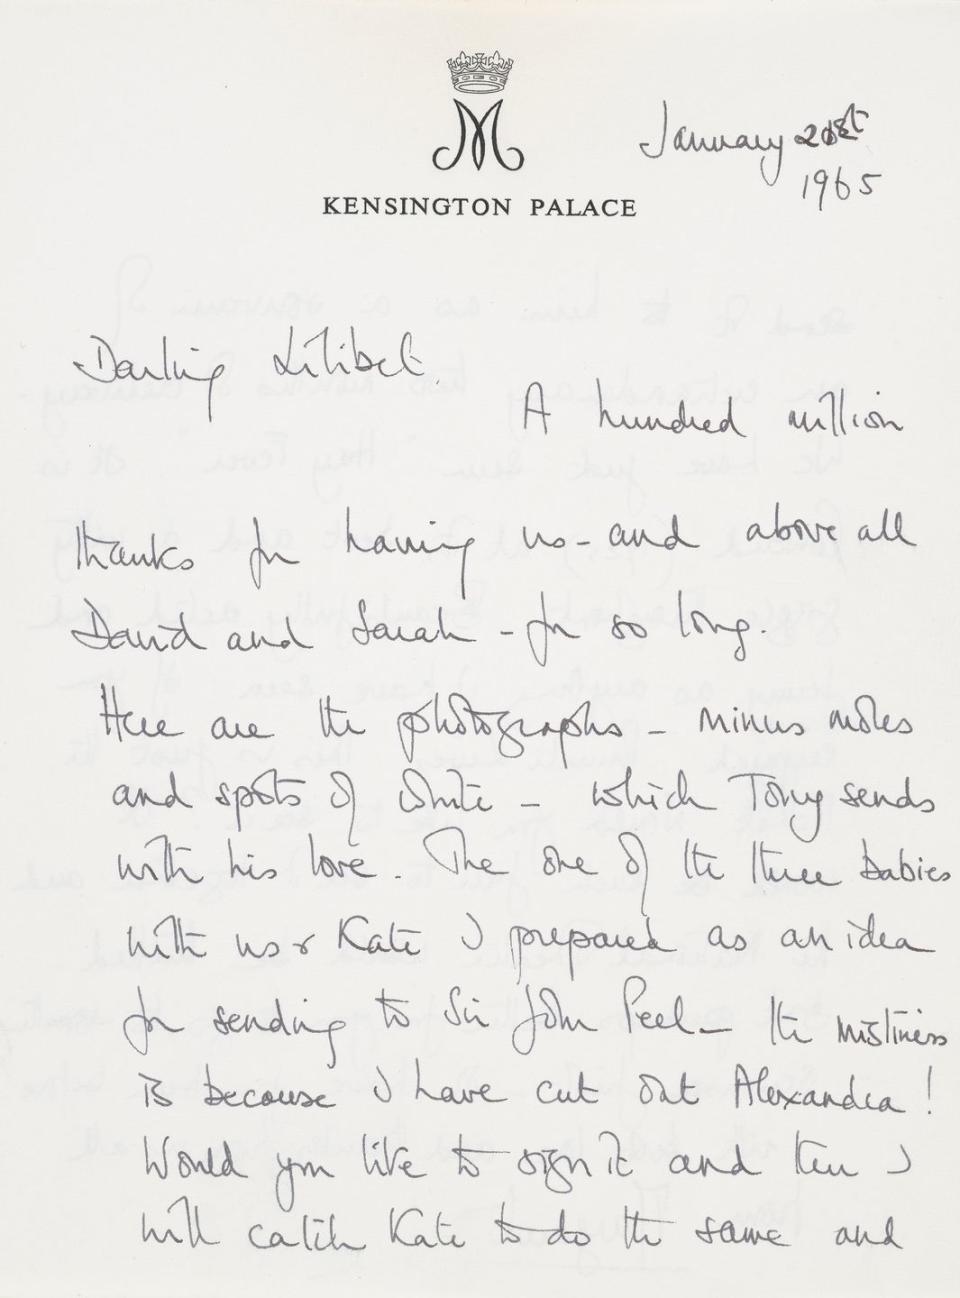 M
KENSINGTON PALACE
January 21st
1965
Darling Lilibet.
A hundred million
thanks for having us - and above all
David and Sarah - for so long.
Here are the photographs - minus moles
and spots of white - which Tony sends
with his love. The one of the three babies
with us & Kate I prepared as an idea
for sending to Sir John Peel - the mistiness
is because I have cut out Alexandra!
Would you like to sign it and then I
will catch Kate to do the same and